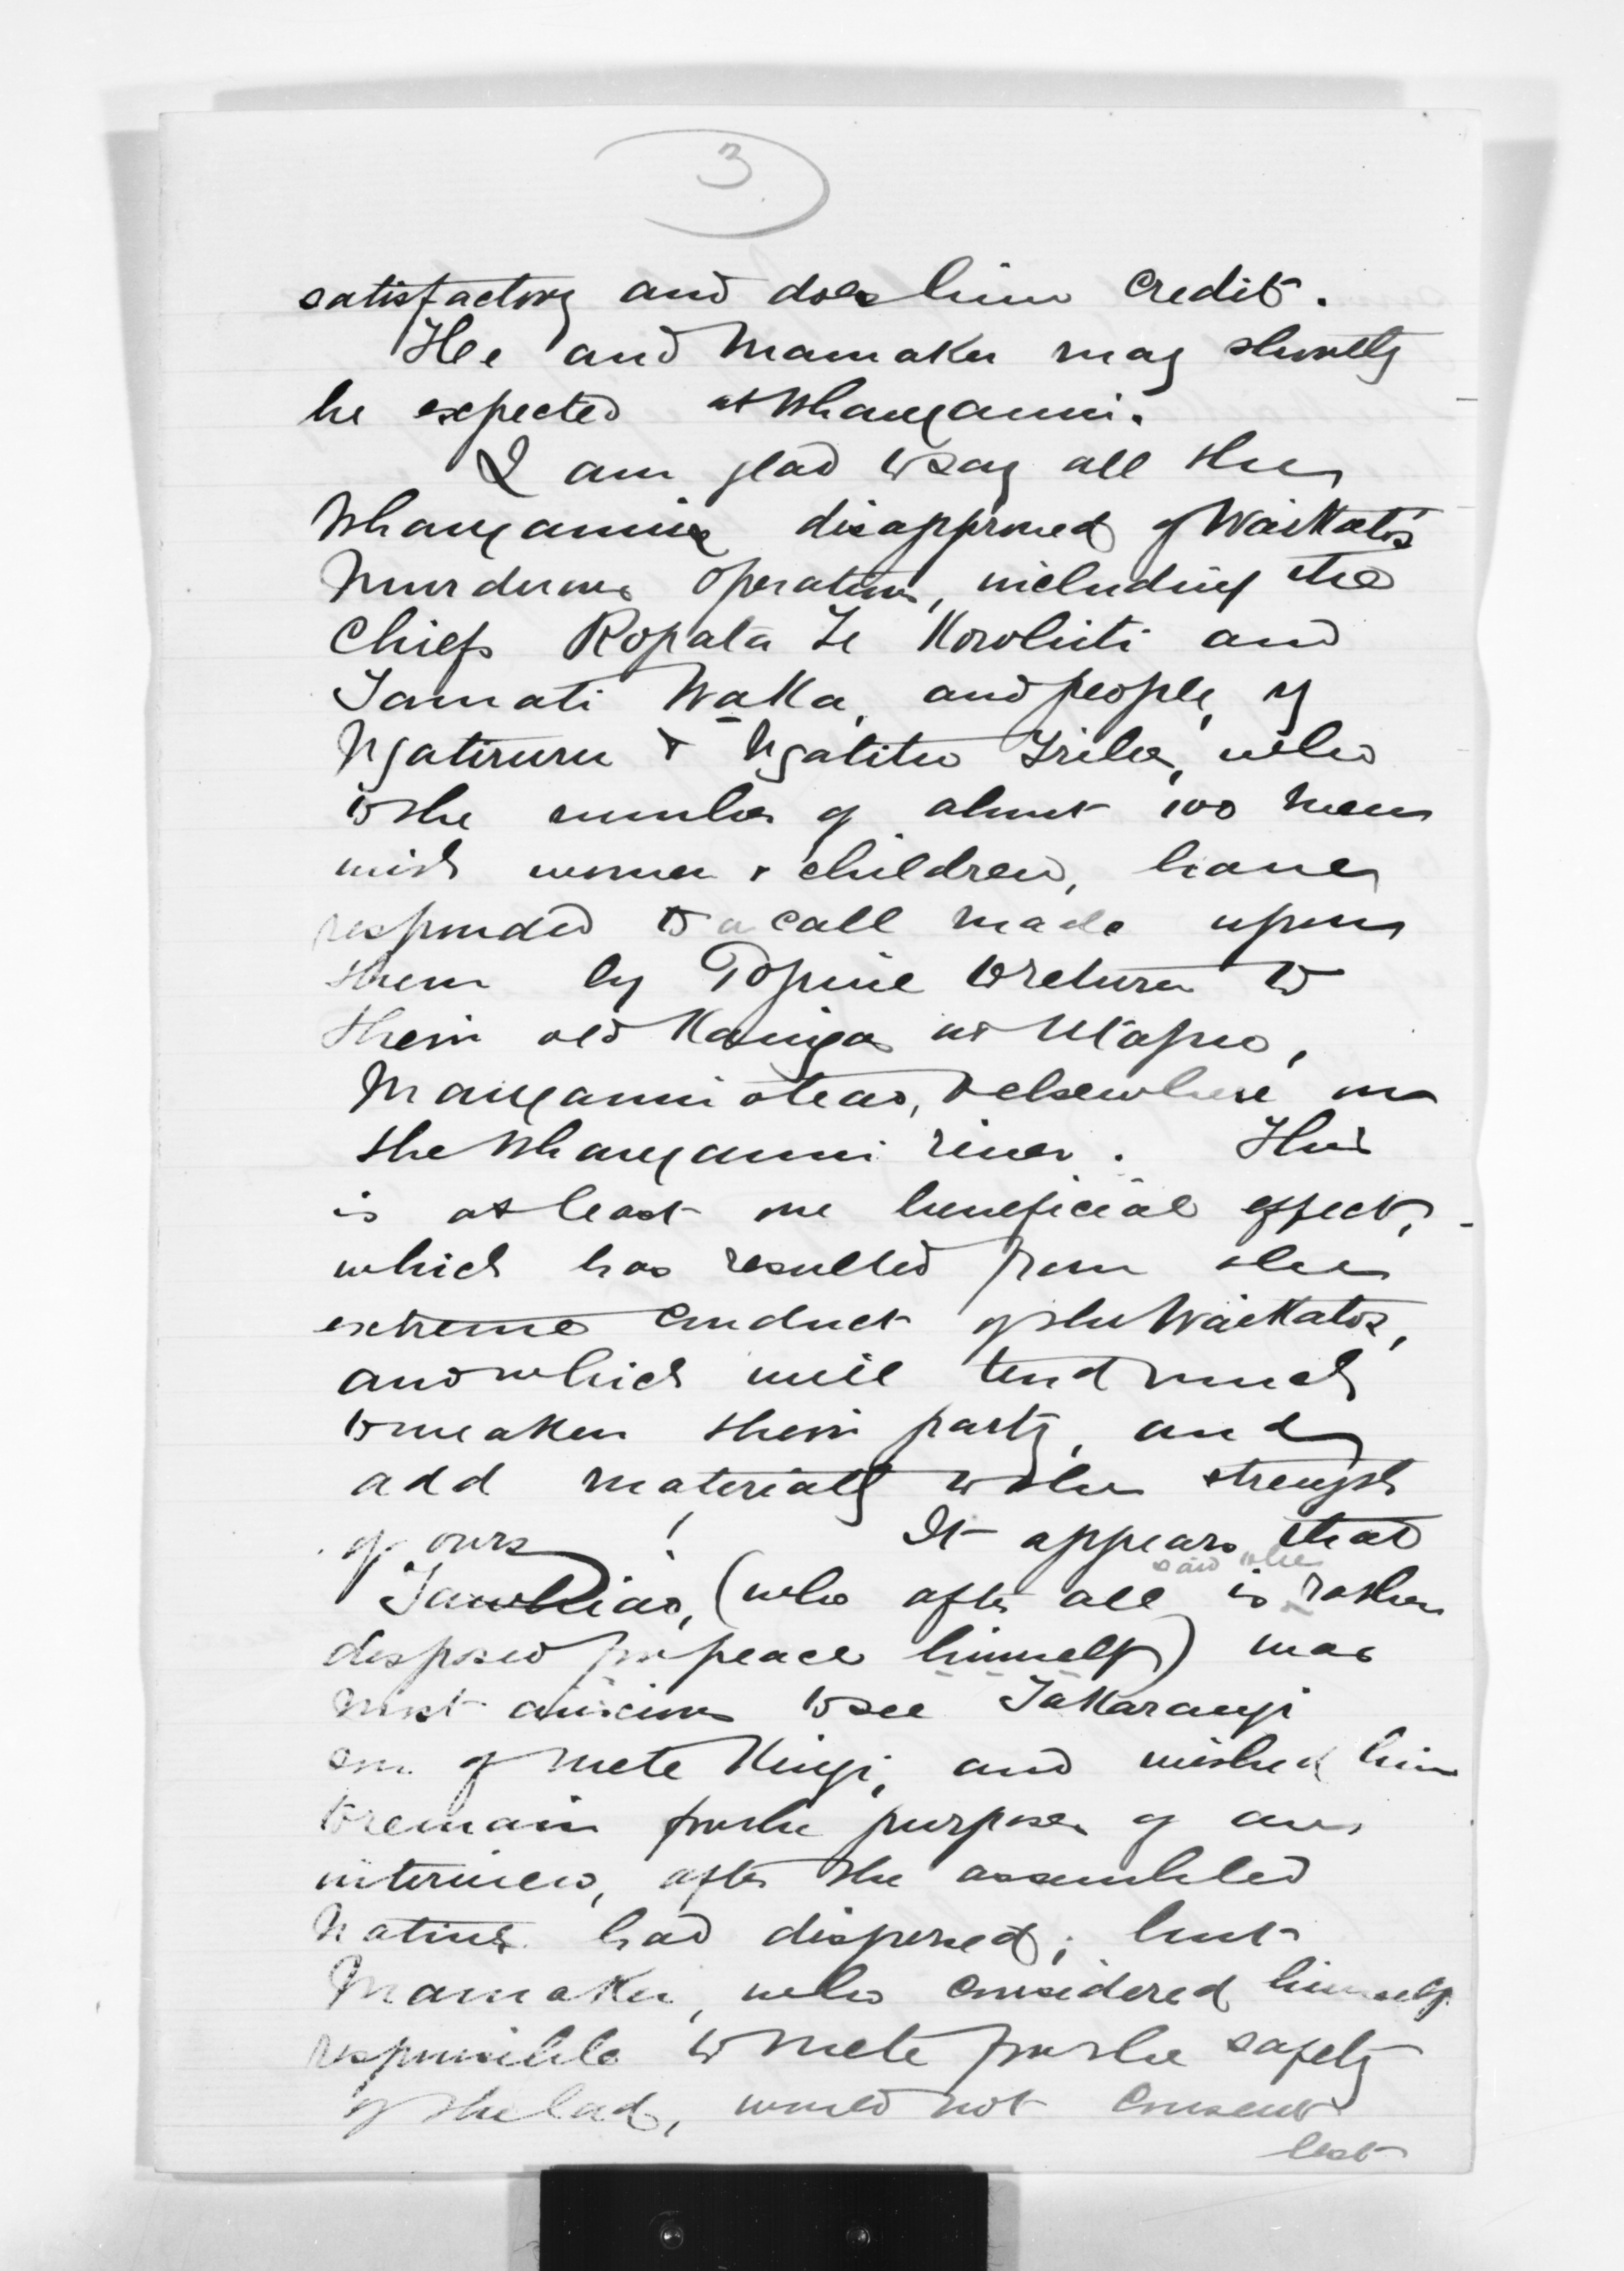 3
satisfactory and does him credit.
He and Mamaku may shortly
be expected at Whanganui.
I am glad to say all the
Whanganuis disapproved of Waikato's
Murderous operations, including the
Chiefs Ropata Te Korohiti and
Tamati Waka, and people, of
Ngatiruru & Ngatitu Tribes, who
to the number of about 100 men
with women & children, have
responded to a call made upon
them by Topine to return to
their old Kaingas at Utapu,
Manganui oteao, & elsewhere on
the Whanganui river. This
is at least one beneficial effect,
which has resulted from the
extreme conduct of the Waikatos,
and which will tend much
to weaken their party, and
add materially to the strength
of ours! It appears that
Tawhiao, (who after all is said to be rather
disposed for peace himself) was
most anxious to see Takarangi
son of Mete Kingi, and wished him
to remain for the purpose of an
interview, after the assembled
Natives had dispersed; but
Mamaku, who considered himself
responsible to Mete for the safety
of the lad, would not consent
lest